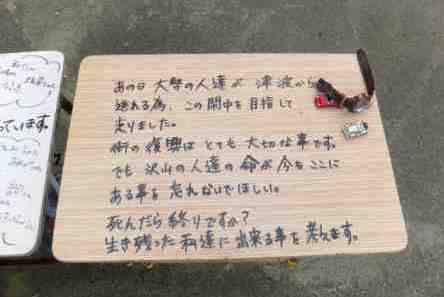 っています。
あの日 大勢の人達が 津波から
逃れる為、この閖中を目指して
走りました。
街の復興はとても大切な事です。
でも 沢山の人達の命が今もここに
ある事を忘れないでほしい。
死んだら終りですか？
生き残った私達に出来る事を考えます。